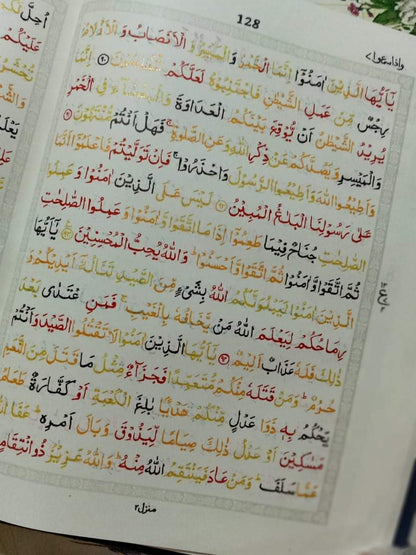 128
واذاسمعوا٧
يٰۤاَيُّهَا الَّذِيْنَ اٰمَنُوْۤا اِنَّمَا الْخَمْرُ وَالْمَيْسِرُ وَالْاَنْصَابُ وَالْاَزْلَامُ
رِجْسٌ مِّنْ عَمَلِ الشَّيْطٰنِ فَاجْتَنِبُوْهُ لَعَلَّكُمْ تُفْلِحُوْنَ ﴿٩٠﴾ اِنَّمَا
يُرِيْدُ الشَّيْطٰنُ اَنْ يُّوْقِعَ بَيْنَكُمُ الْعَدَاوَةَ وَالْبَغْضَآءَ فِى الْخَمْرِ
وَالْمَيْسِرِ وَيَصُدَّكُمْ عَنْ ذِكْرِ اللّٰهِ وَعَنِ الصَّلٰوةِ ۚ فَهَلْ اَنْتُمْ مُّنْتَهُوْنَ ﴿٩١﴾
وَاَطِيْعُوا اللّٰهَ وَاَطِيْعُوا الرَّسُوْلَ وَاحْذَرُوْا ۚ فَاِنْ تَوَلَّيْتُمْ فَاعْلَمُوْۤا اَنَّمَا
عَلٰى رَسُوْلِنَا الْبَلٰغُ الْمُبِيْنُ ﴿٩٢﴾ لَيْسَ عَلَى الَّذِيْنَ اٰمَنُوْا وَعَمِلُوا
الصّٰلِحٰتِ جُنَاحٌ فِيْمَا طَعِمُوْۤا اِذَا مَا اتَّقَوْا وَّاٰمَنُوْا وَعَمِلُوا الصّٰلِحٰتِ
ثُمَّ اتَّقَوْا وَّاٰمَنُوْا ثُمَّ اتَّقَوْا وَّاَحْسَنُوْا ؕ وَاللّٰهُ يُحِبُّ الْمُحْسِنِيْنَ ﴿٩٣﴾ يٰۤاَيُّهَا
الَّذِيْنَ اٰمَنُوْا لَيَبْلُوَنَّكُمُ اللّٰهُ بِشَىْءٍ مِّنَ الصَّيْدِ تَنَالُهٗۤ اَيْدِيْكُمْ وَ
رِمَاحُكُمْ لِيَعْلَمَ اللّٰهُ مَنْ يَّخَافُهٗ بِالْغَيْبِ ۚ فَمَنِ اعْتَدٰى بَعْدَ
ذٰلِكَ فَلَهٗ عَذَابٌ اَلِيْمٌ ﴿٩٤﴾ يٰۤاَيُّهَا الَّذِيْنَ اٰمَنُوْا لَا تَقْتُلُوا الصَّيْدَ وَاَنْتُمْ
حُرُمٌ ؕ وَمَنْ قَتَلَهٗ مِنْكُمْ مُّتَعَمِّدًا فَجَزَآءٌ مِّثْلُ مَا قَتَلَ مِنَ النَّعَمِ
يَحْكُمُ بِهٖ ذَوَا عَدْلٍ مِّنْكُمْ هَدْيًۢا بٰلِغَ الْكَعْبَةِ اَوْ كَفَّارَةٌ طَعَامُ
مَسٰكِيْنَ اَوْ عَدْلُ ذٰلِكَ صِيَامًا لِّيَذُوْقَ وَبَالَ اَمْرِهٖ ؕ عَفَا اللّٰهُ
عَمَّا سَلَفَ ؕ وَمَنْ عَادَ فَيَنْتَقِمُ اللّٰهُ مِنْهُ ؕ وَاللّٰهُ عَزِيْزٌ ذُو انْتِقَامٍ
منزل٢